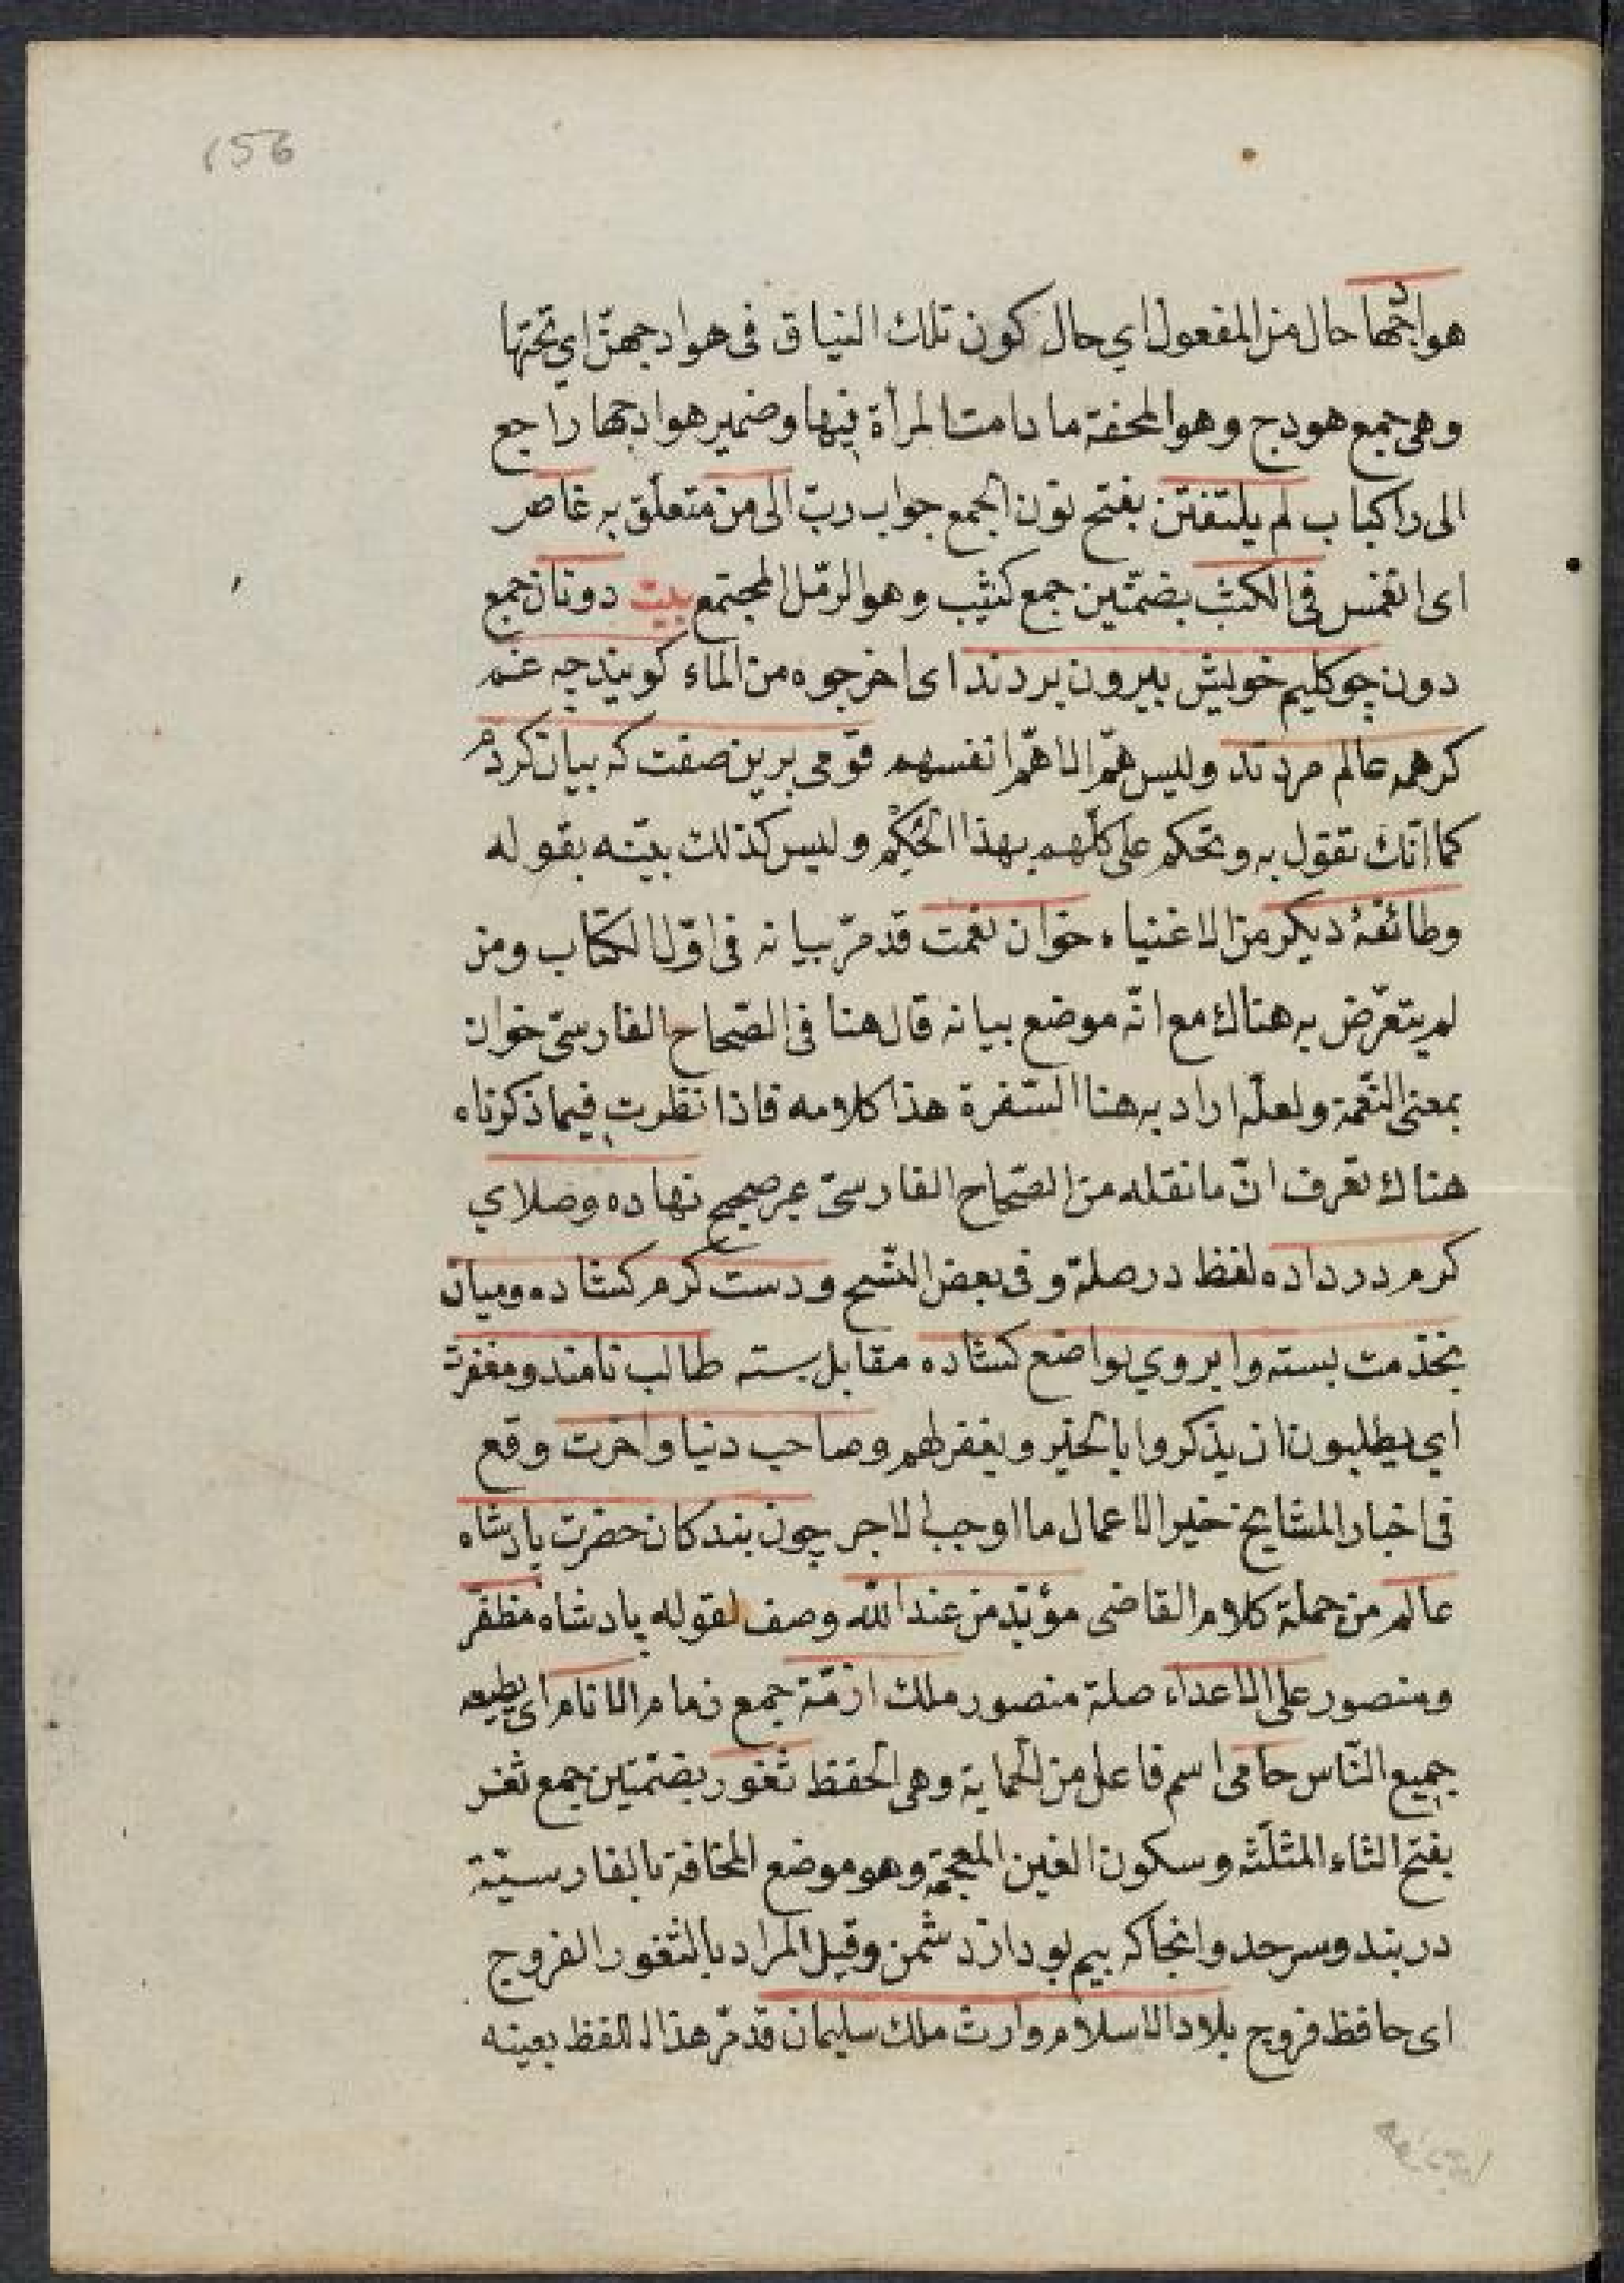 156
هوادجها حال من المفعول اي حال كون تلك النياق فى هوادجهنّ اي تحتها
وهى جمع هودج وهو المحفة ما دامت المرأة فيها وضمير هوادجها راجع
الى راكبات لم يلتفتن بفتح نون الجمع جواب ربّ الى من متعلّق به غاص
اى انغمس فى الكثب بضمّتين جمع كثيب وهو الرمّل المجتمع بيت دونان جمع
دون چو كليم خويش بيرون بردند اى اخرجوه من الماء كويند چه غم
كر همه عالم مردند وليس همّ الا همّ انفسهم قومى برين صفت كه بيان كردم
كما انّك تقول به وتحكم على كلّهم بهذا الحكم وليس كذلك بيّنه بقوله
وطائفۀ ديكر من الاغنياء خوان نعمت قد مرّ بيانه فى اوّل الكتاب ومن
لم يتعرّض به هناك مع انّه موضع بيانه قال هنا فى الصّحاح الفارسىّ خوان
بمعنى النّعمة ولعلّه اراد به هنا السّفرة هذا كلامه فاذا نظرت فيما ذكرناه
هناك تعرف انّ ما نقله من الصّحاح الفارسىّ غير صحيح نهاده وصلاي
كرم در داده لفظ در صلة و فى بعض النّسخ ودست كرم كشاده وميان
بخدمت بسته وابروي بواضع كشاده مقابل بسته طالب نامند ومغفرت
اي يطلبون ان يذكروا بالخير ويغفر لهم وصاحب دنيا واخرت وقع
فى اخبار المشايخ خير الاعمال ما اوجب الاجر چون بندكان حضرت پادشاه
عالم من جملة كلام القاضى مؤيّد من عند الله وصف لقوله پادشاه مظفّر
ومنصور على الاعداء صلة منصور ملك ازمّة جمع زمام الانام اى يطيعه
جميع النّاس حامى اسم فاعل من الحماية وهى الحفظ ثغور بضمّتين جمع ثغر
بفتح الثاء المثلّثة وسكون الغين المعجمة وهو موضع المخافة بالفارسيّة
دربند وسرحد وانجا كه بيم بود از دشمن وقيل المراد بالثغور الفروج
اى حافظ فروج بلاد الاسلام وارث ملك سليمان قد مرّ هذا اللفظ بعينه